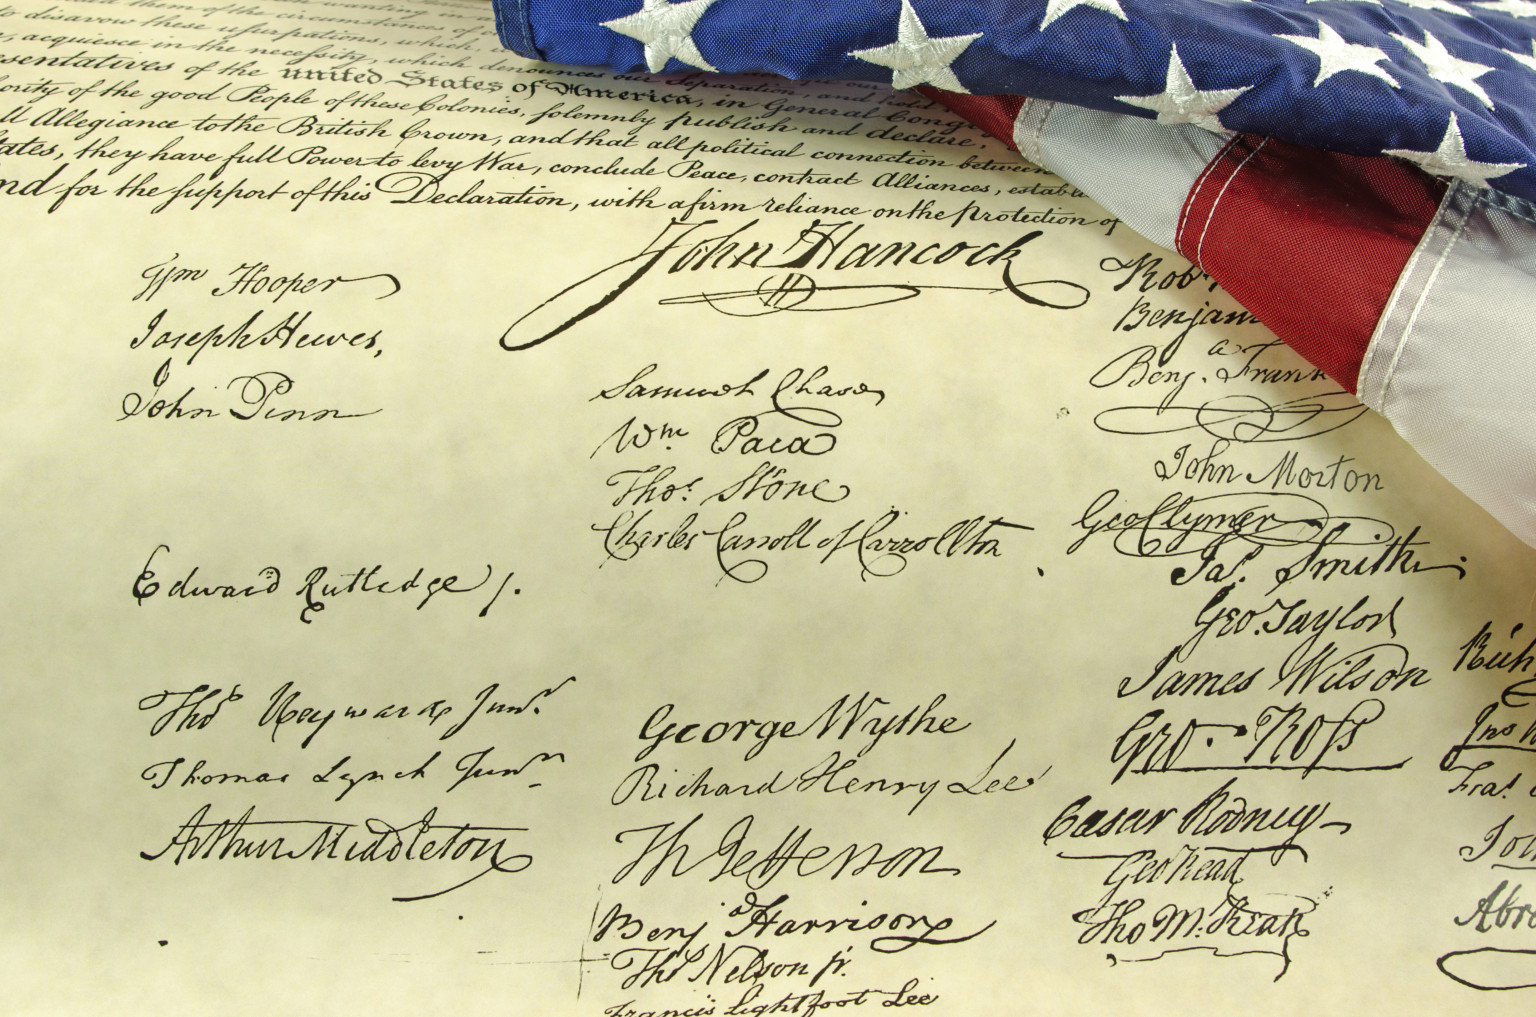 to disavow these usurpations, which,
acquiesce in the necessity, which denounces our Separation, and hold
sentatives of the united States of America, in General Cong
ority of the good People of these Colonies, solemnly publish and declare,
ll Allegiance to the British Crown, and that all political connection between
tates, they have full Power to levy War, conclude Peace, contract Alliances, establ
nd for the support of this Declaration, with a firm reliance on the protection of
John Hancock
Wm Hooper
Joseph Hewes,
John Penn
Edward Rutledge /.
Thos Heyward Junr.
Thomas Lynch Junr.
Arthur Middleton
Samuel Chase
Wm. Paca
Thos. Stone
Charles Carroll of Carrollton
George Wythe
Richard Henry Lee
Th Jefferson
Benja Harrison
Thos Nelson jr.
Francis Lightfoot Lee
Rob
Benjam
Benja. Frank
John Morton
Geo Clymer
Jas. Smith.
Geo. Taylor
James Wilson
Geo. Ross
Caesar Rodney
Geo Read
Tho M:Kean
Rich
Jno
Fras.
Abra